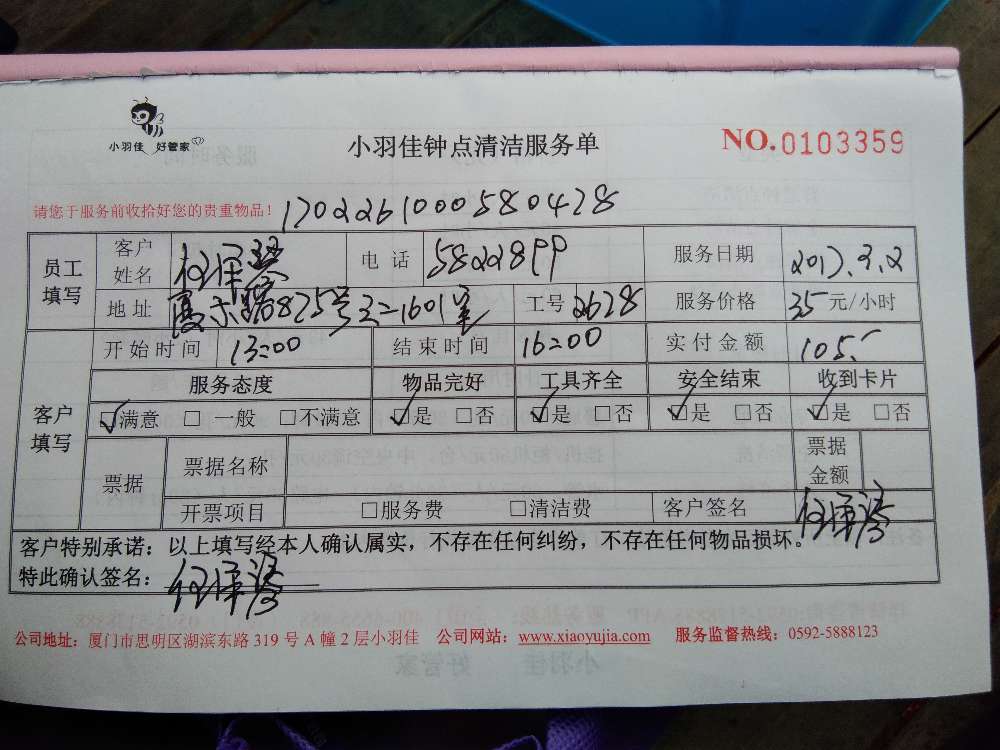 小羽佳 好管家
小羽佳钟点清洁服务单
NO.0103359
请您于服务前收拾好您的贵重物品！ 1702261000580428
员工填写 客户姓名 电话 58228PP 服务日期 2017.3.2
地址 厦禾路875号之二1601室 工号 2628 服务价格 35 元/小时
客户填写 开始时间 13:00 结束时间 16:00 实付金额 105.-
服务态度 物品完好 工具齐全 安全结束 收到卡片
☑满意 □一般 □不满意 ☑是 □否 ☑是 □否 ☑是 □否 ☑是 □否
票据 票据名称 票据金额
开票项目 □服务费 □清洁费 客户签名
客户特别承诺：以上填写经本人确认属实，不存在任何纠纷，不存在任何物品损坏。
特此确认签名：
公司地址：厦门市思明区湖滨东路 319 号 A 幢 2 层小羽佳 公司网站：www.xiaoyujia.com 服务监督热线：0592-5888123